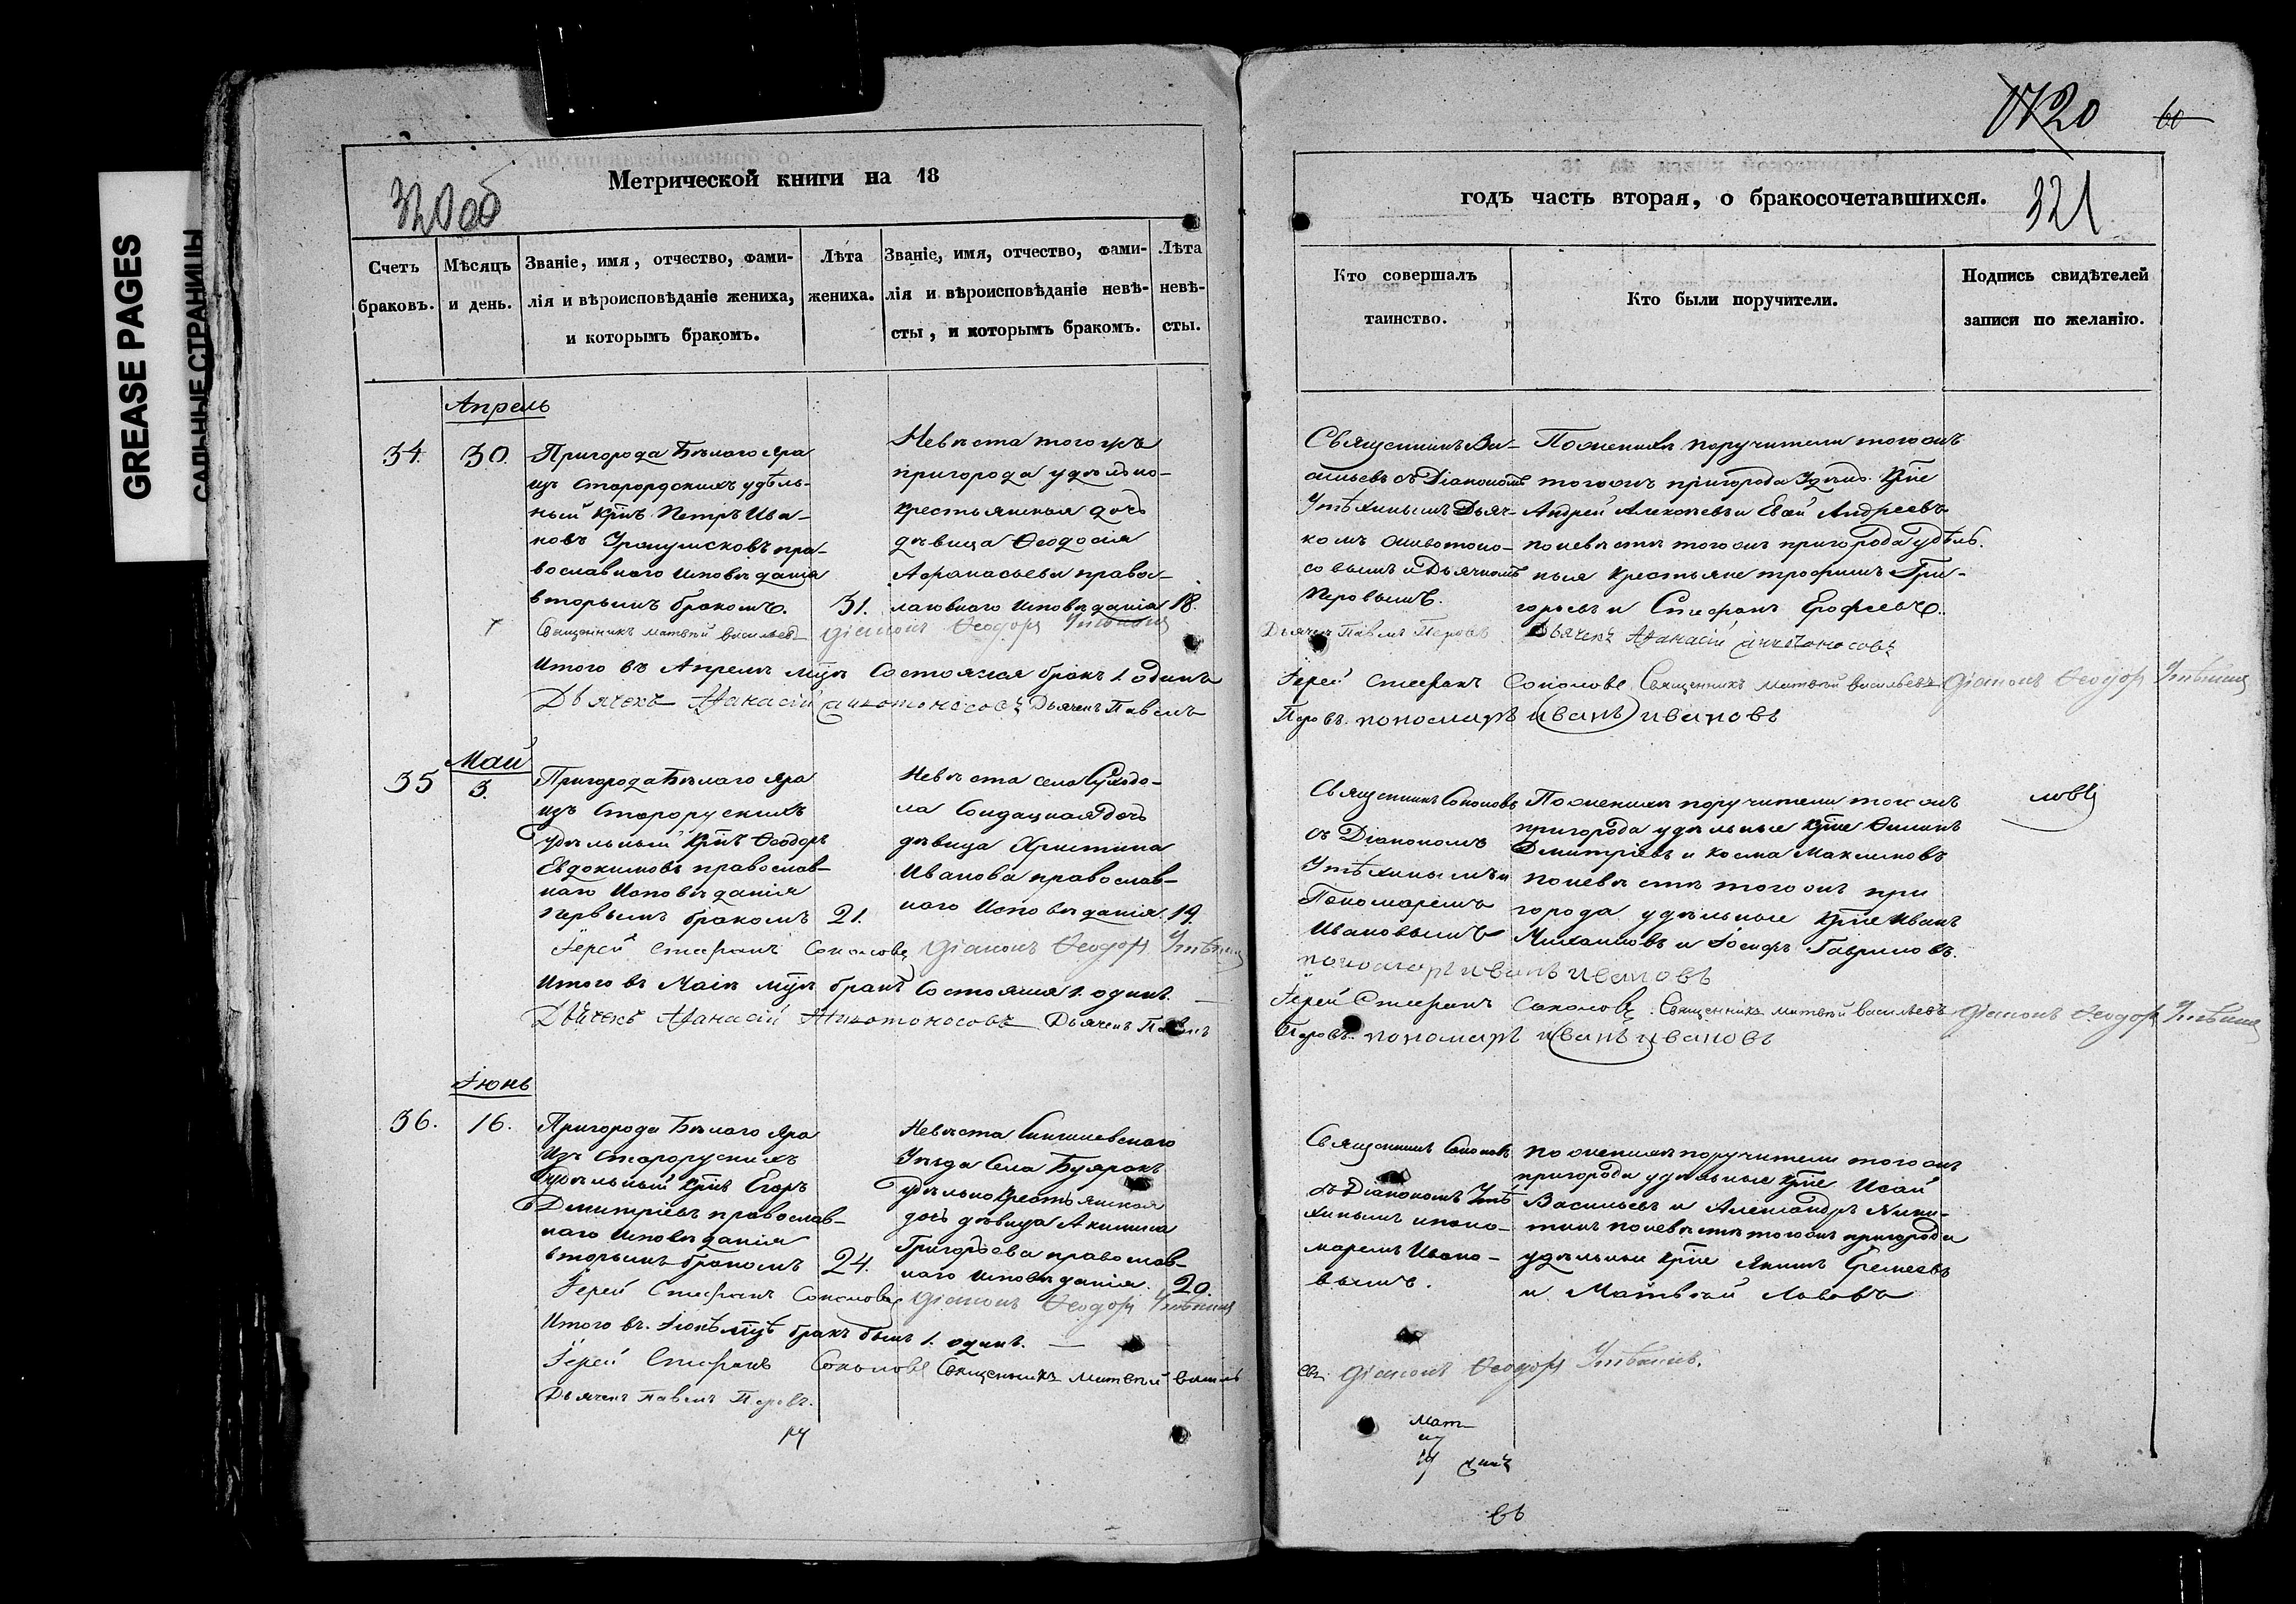 GREASE PAGES
САЛЬНЫЕ СТРАНИЦЫ
320об
Метрической книги на 18
Счетъ браковъ.
Мѣсяцъ и день.
Званіе, имя, отчество, фами-
лія и вѣроисповѣданіе жениха,
и которымъ бракомъ.
Лѣта жениха.
Званіе, имя, отчество, фами-
лія и вѣроисповѣданіе невѣ-
сты, и которымъ бракомъ.
Лѣта невѣ-
сты.
Апрель
34.
30.
Пригорода Бѣлаго Яра
изъ
удѣль-
ный Крнъ Петръ Ива-
новъ пра-
вославнаго Исповѣданія
вторымъ бракомъ.
31.
Невѣста тогожъ
пригорода удѣльно-
крестьянская дочь
дѣвица Ѳеодосія
Афанасьева правос-
лавнаго Исповѣданія
18.
Священникъ Матвѣй Васильевъ Діаконъ Ѳеодоръ Утѣхинъ
Итого въ Апрелѣ мцѣ состоялся бракъ 1. одинъ
Дьячекъ Афанасій Животоносовъ Дьячекъ Павелъ
Май
35
3.
Пригорода Бѣлаго Яра
изъ Старорускихъ
удѣльный Крнъ Ѳеодоръ
Евдокимовъ православ-
наго Исповѣданія
первымъ бракомъ
21.
Невѣста села Суходо-
ла Солдацкая дочь
дѣвица Христина
Иванова православ-
наго Исповѣданія
19.
Іерей Стефанъ Соколовъ Діаконъ Ѳеодоръ Утѣхинъ
Итого въ Маіѣ мцѣ бракъ состоялся 1. одинъ.
Дьячекъ Афанасій Животоносовъ Дьячекъ Павелъ
Іюнь
36.
16.
Пригорода Бѣлаго Яра
Изъ Старорускихъ
удѣльный Крнъ Егоръ
Дмитріевъ православ-
наго Исповѣданія
вторымъ бракомъ
24.
Невѣста Сингилевскаго
Уѣзда Села Буяракъ
удѣльнокрестьянская
дочь дѣвица Акилина
Григорьева православ-
наго Исповѣданія.
20.
Іерей Стефанъ Соколовъ Діаконъ Ѳеодоръ Утѣхинъ
Итого въ Іюнѣ мцѣ бракъ былъ 1. одинъ.
Іерей Стефанъ Соколовъ Священникъ Матвѣй Василь
Дьячекъ Павелъ Перовъ.
20
60
годъ часть вторая, о бракосочетавшихся.
321
Кто совершалъ
таинство.
Кто были поручители.
Подпись свидѣтелей
записи по желанію.
Священникъ Ва-
сильевъ съ Діакономъ
Утѣхинымъ Дьяч-
комъ Животоно-
совымъ и Дьячкомъ
Перовымъ.
По женихѣ поручители тогожъ
тогожъ пригорода Удѣльно. Кртне
Андрей Алексѣевъ и Евсей Андреевъ
по невѣстѣ тогожъ пригорода удѣль.
ныя крестьяне Трофимъ Гри-
горьевъ и Стефанъ Ерофѣевъ.
Дьячекъ Павелъ Перовъ Дьячекъ Афанасій Животоносовъ
Іерей Стефанъ Соколовъ Священникъ Матвѣй Васильевъ Діаконъ Ѳеодоръ Утѣхинъ
Перовъ. пономарь Иванъ Ивановъ
Священникъ Соколовъ
съ Діакономъ
Утѣхинымъ и
Пономаремъ
Ивановымъ
По женихѣ поручители тогожъ
пригорода удѣльные Кртне Филипъ
Дмитріевъ и Косма Максимовъ
по невѣстѣ тогожъ при
города удѣльные Кртне Иванъ
Михайловъ и Іосифъ Гавриловъ.
пономарь Иванъ Ивановъ
Іерей Стефанъ Соколовъ. Священникъ Матвѣй Васильевъ Діаконъ Ѳеодоръ Утѣхинъ
Перовъ. пономарь Иванъ Ивановъ
Священникъ Соколовъ
съ Діакономъ Утѣ
хинымъ и поно-
маремъ Ивано-
вымъ.
по женихѣ поручители тогожъ
пригорода удѣльные Кртне Исай
Васильевъ и Александръ Ники-
тинъ по невѣстѣ тогожъ пригорода
удѣльныя Кртне Якимъ Еремеевъ
и Матвѣй Львовъ
евъ Діаконъ Ѳеодоръ Утѣхинъ.